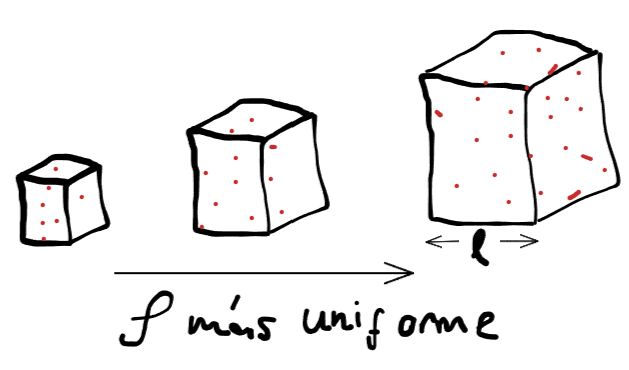 l
ρ más uniforme